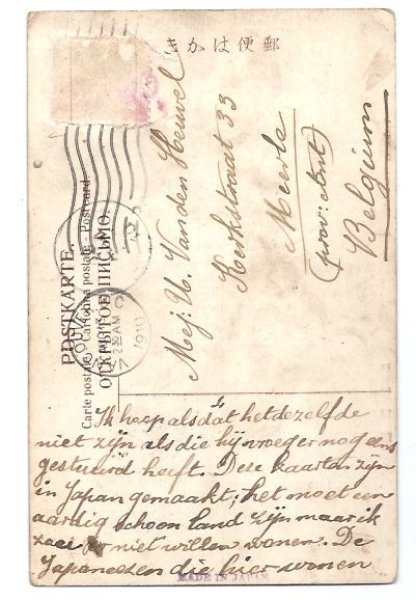 郵便はかき
POSTKARTE.
Carte postale - Cartolina postale - Postcard.
ОТКРЫТОЕ ПИСЬМО.
2 30 AM
1910
Mej: U. Van den Heuvel
Kerkstraat 33
Meerle
(prov: Ant)
Belgium
Ik hoop als dat het dezelfde
niet zijn als die hij vroeger nog eens
gestuurd heeft. Deze kaarten zijn
in Japan gemaakt; het moet een
aardig schoon land zijn maar ik
zou er niet willen wonen. De
Japaneezen die hier wonen
MADE IN JAPAN